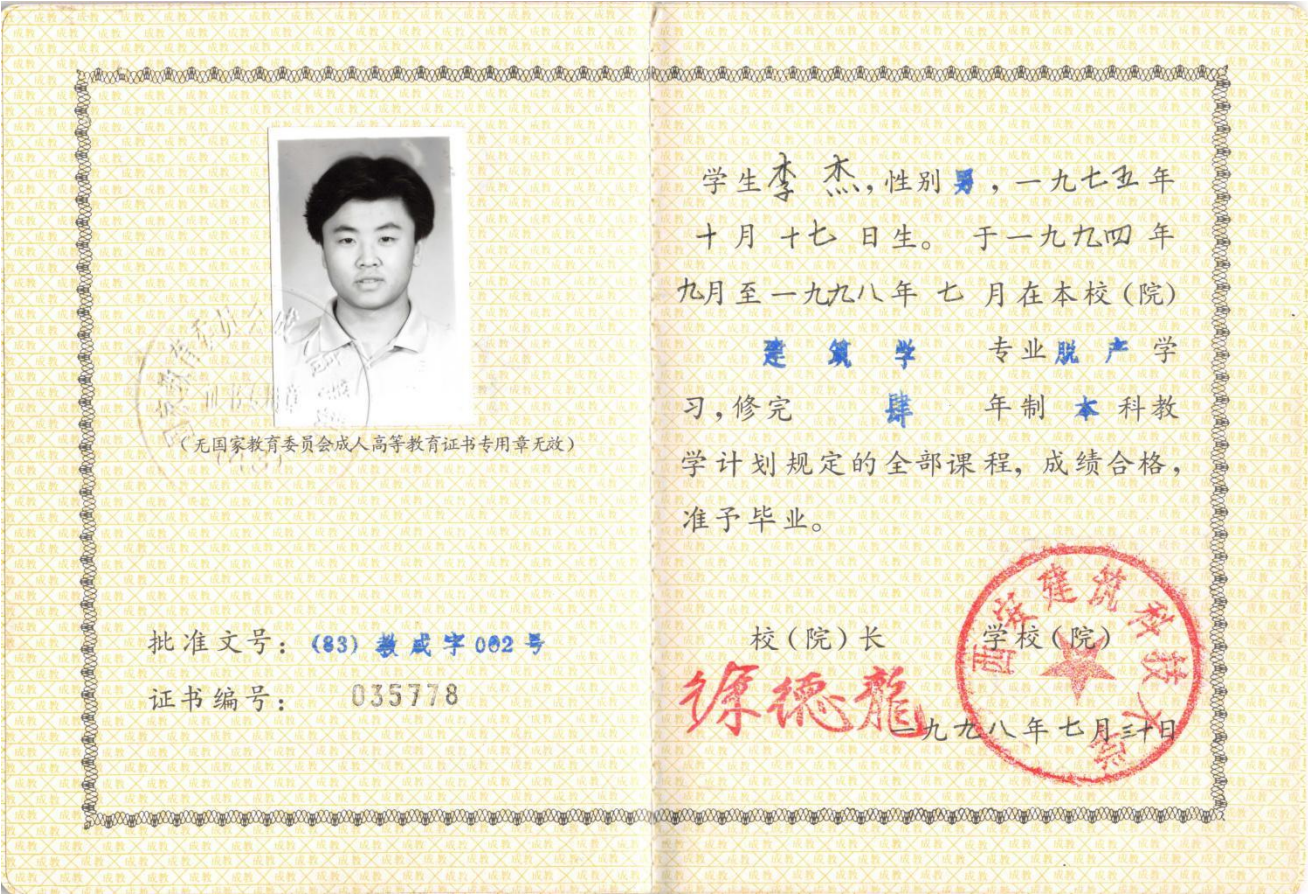 (无国家教育委员会成人高等教育证书专用章无效)
批准文号: (83) 教成字002号
证书编号: 035778
学生李杰, 性别男, 一九七五年
十月十七日生。于一九九四年
九月至一九九八年七月在本校(院)
建筑学 专业脱产学
习, 修完 肆 年制 本 科教
学计划规定的全部课程, 成绩合格,
准予毕业。
校(院)长 学校(院)
徐德龍
西安建筑科技大学
一九九八年七月三十日